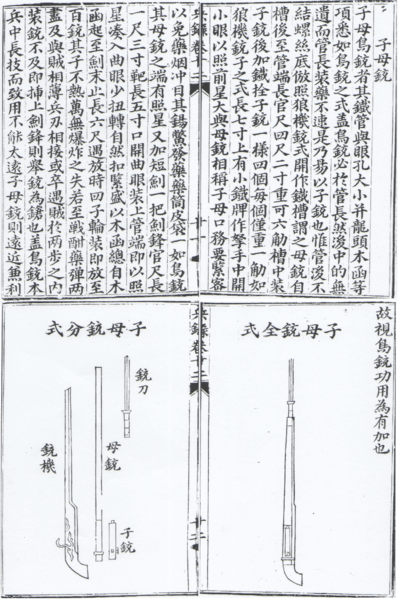 子母銃
子母鳥銃者其鐵管與眼孔大小并龍頭木函等
項悉如鳥銃之式蓋鳥銃必於管長然後中的無
遺而管長裝藥不速是乃易以子銃也惟管後不
結螺絲底倣照狼機銃式開作鐵槽謂之母銃自
槽後至管端長官尺四尺二寸重可六觔槽中裝
子銃後加鐵拴子銃一樣四個每個僅重一觔如
狼機銃子之式長七寸上有小鐵牌作拏手中開
小眼以照前星大與母銃相稱子母口務要緊密
兵錄卷十二
以免藥烟冲目其錫鱉發藥藥筒皮袋一如鳥銃
其母銃之端有照星又加短劍一把劍鋒官尺長
一尺三寸靶長五寸口開曲眼裝上管端即以照
星湊入曲眼少扭轉自然扣緊盛以木函總自木
函起至劍末止長六尺遇放時回子輪裝即放至
百銃其子不熱萬無爆炸之失若至戰酣藥彈兩
盡及與賊相薄兵刃相接或卒遇賊於兩步之内
裝銃不及即揷上劍鋒則舉銃為鎗也蓋鳥銃本
兵中長技而致用不能太遠子母銃則遠近兼利
故視鳥銃功用為有加也
子母銃全式
兵錄卷十二
廿二
子母銃分式
銃刀
母銃
子銃
銃機